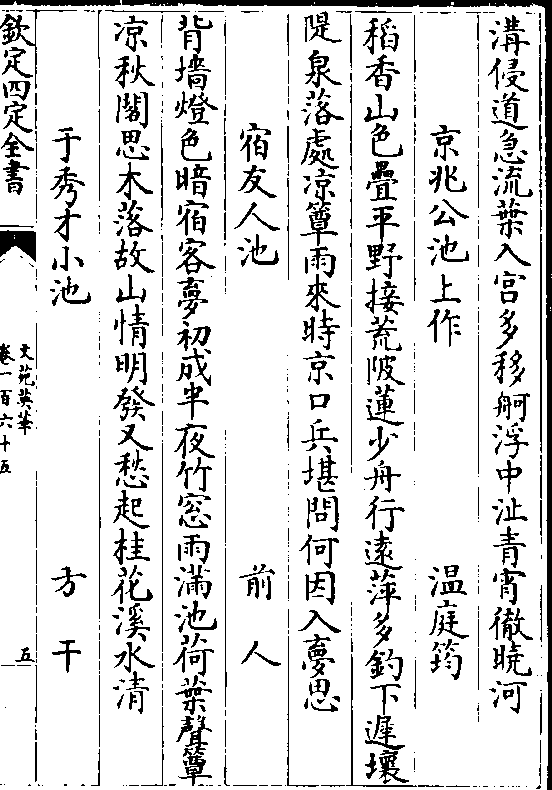 溝侵道急流葉入宫多移舸浮中沚青宵徹曉河
京兆公池上作 温庭筠
稻香山色疊平野接荒陂蓮少舟行遠萍多釣下遲壞
隄泉落處凉簟雨來時京口兵堪問何因入夢思
宿友人池 前人
背墻燈色暗宿客夢初成半夜竹窓雨滿池荷葉聲簟
凉秋閣思木落故山情明發又愁起桂花溪水清
于秀才小池 方干
欽定四庫全書
文苑英華
卷一百六十五
五